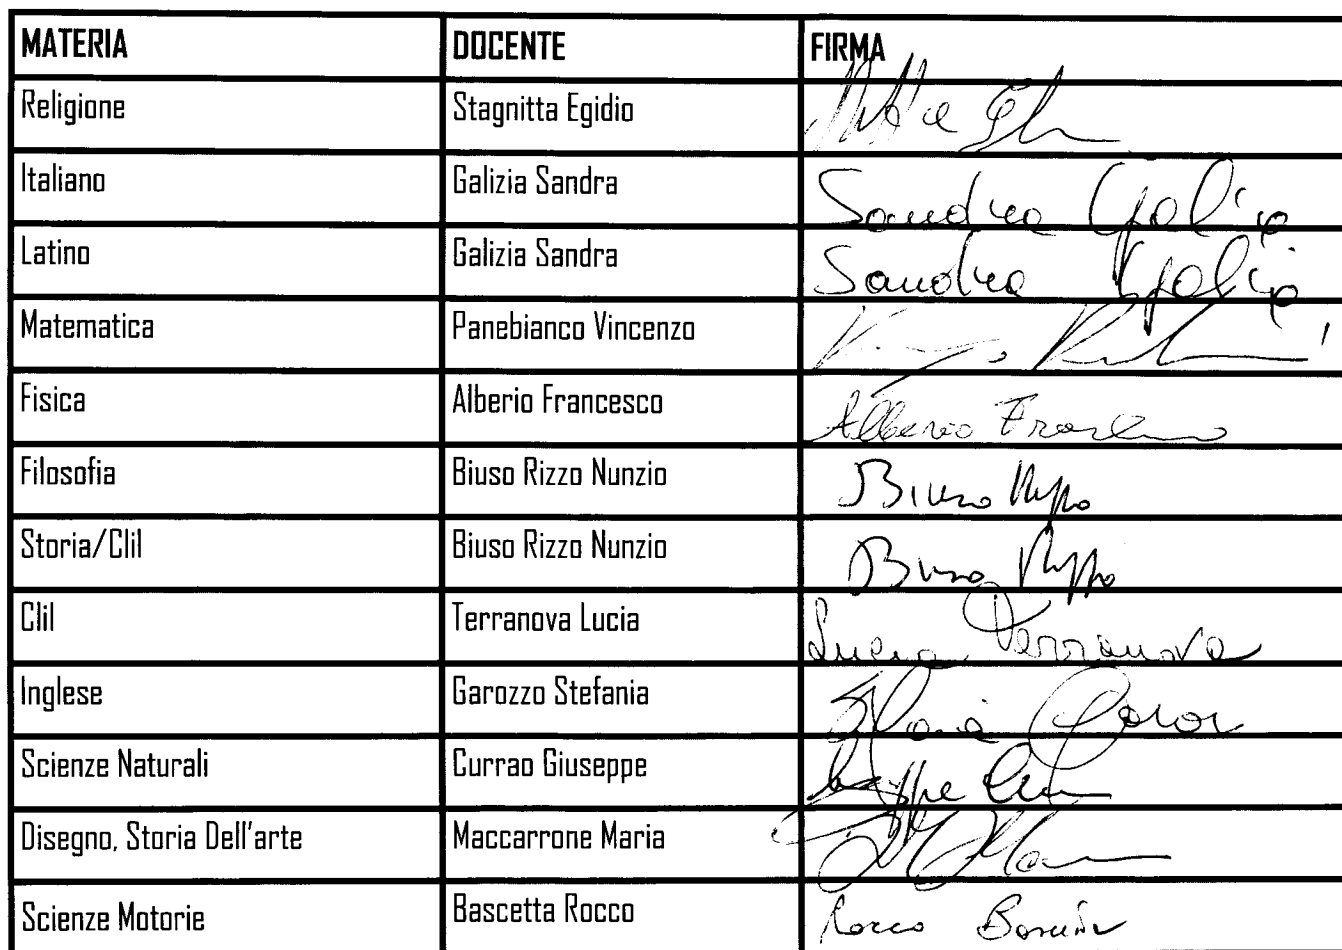 MATERIA DOCENTE FIRMA
Religione Stagnitta Egidio
Italiano Galizia Sandra Sandra Galizia
Latino Galizia Sandra Sandra Galizia
Matematica Panebianco Vincenzo
Fisica Alberio Francesco Alberio Francesco
Filosofia Biuso Rizzo Nunzio Biuso
Storia/Clil Biuso Rizzo Nunzio Biuso
Clil Terranova Lucia Lucia Terranova
Inglese Garozzo Stefania
Scienze Naturali Currao Giuseppe
Disegno, Storia Dell'arte Maccarrone Maria
Scienze Motorie Bascetta Rocco Rocco